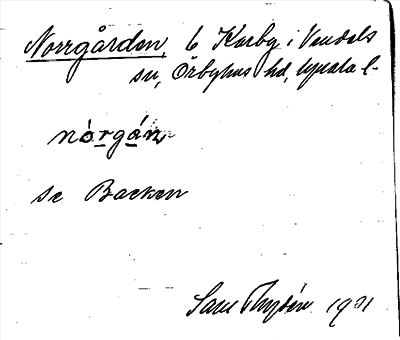 Norrgården, 6 Karby i Vendels
sn, Örbyhus hd, Upsala l-
nòrgán
se Backen
Sam Thysén 1931